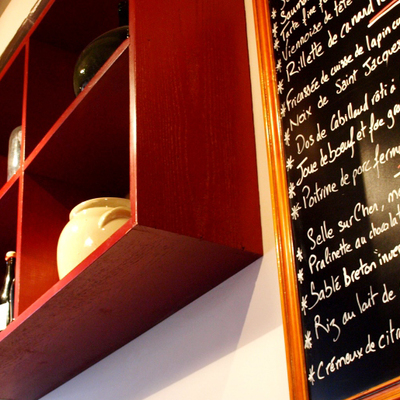 * Saumon
* Tarte fine f
* Viennoise de tête
* Rillette de canard
* Fricassée de cuisse de lapin con
* Noix de Saint Jacques
* Dos de Cabillaud rôti à
* Joue de boeuf et foie gra
* Poitrine de porc ferm
* Selle sur Cher, m
* Pralinette au chocolat
* Sablé breton "inver
* Riz au lait de
* Crémeux de citr